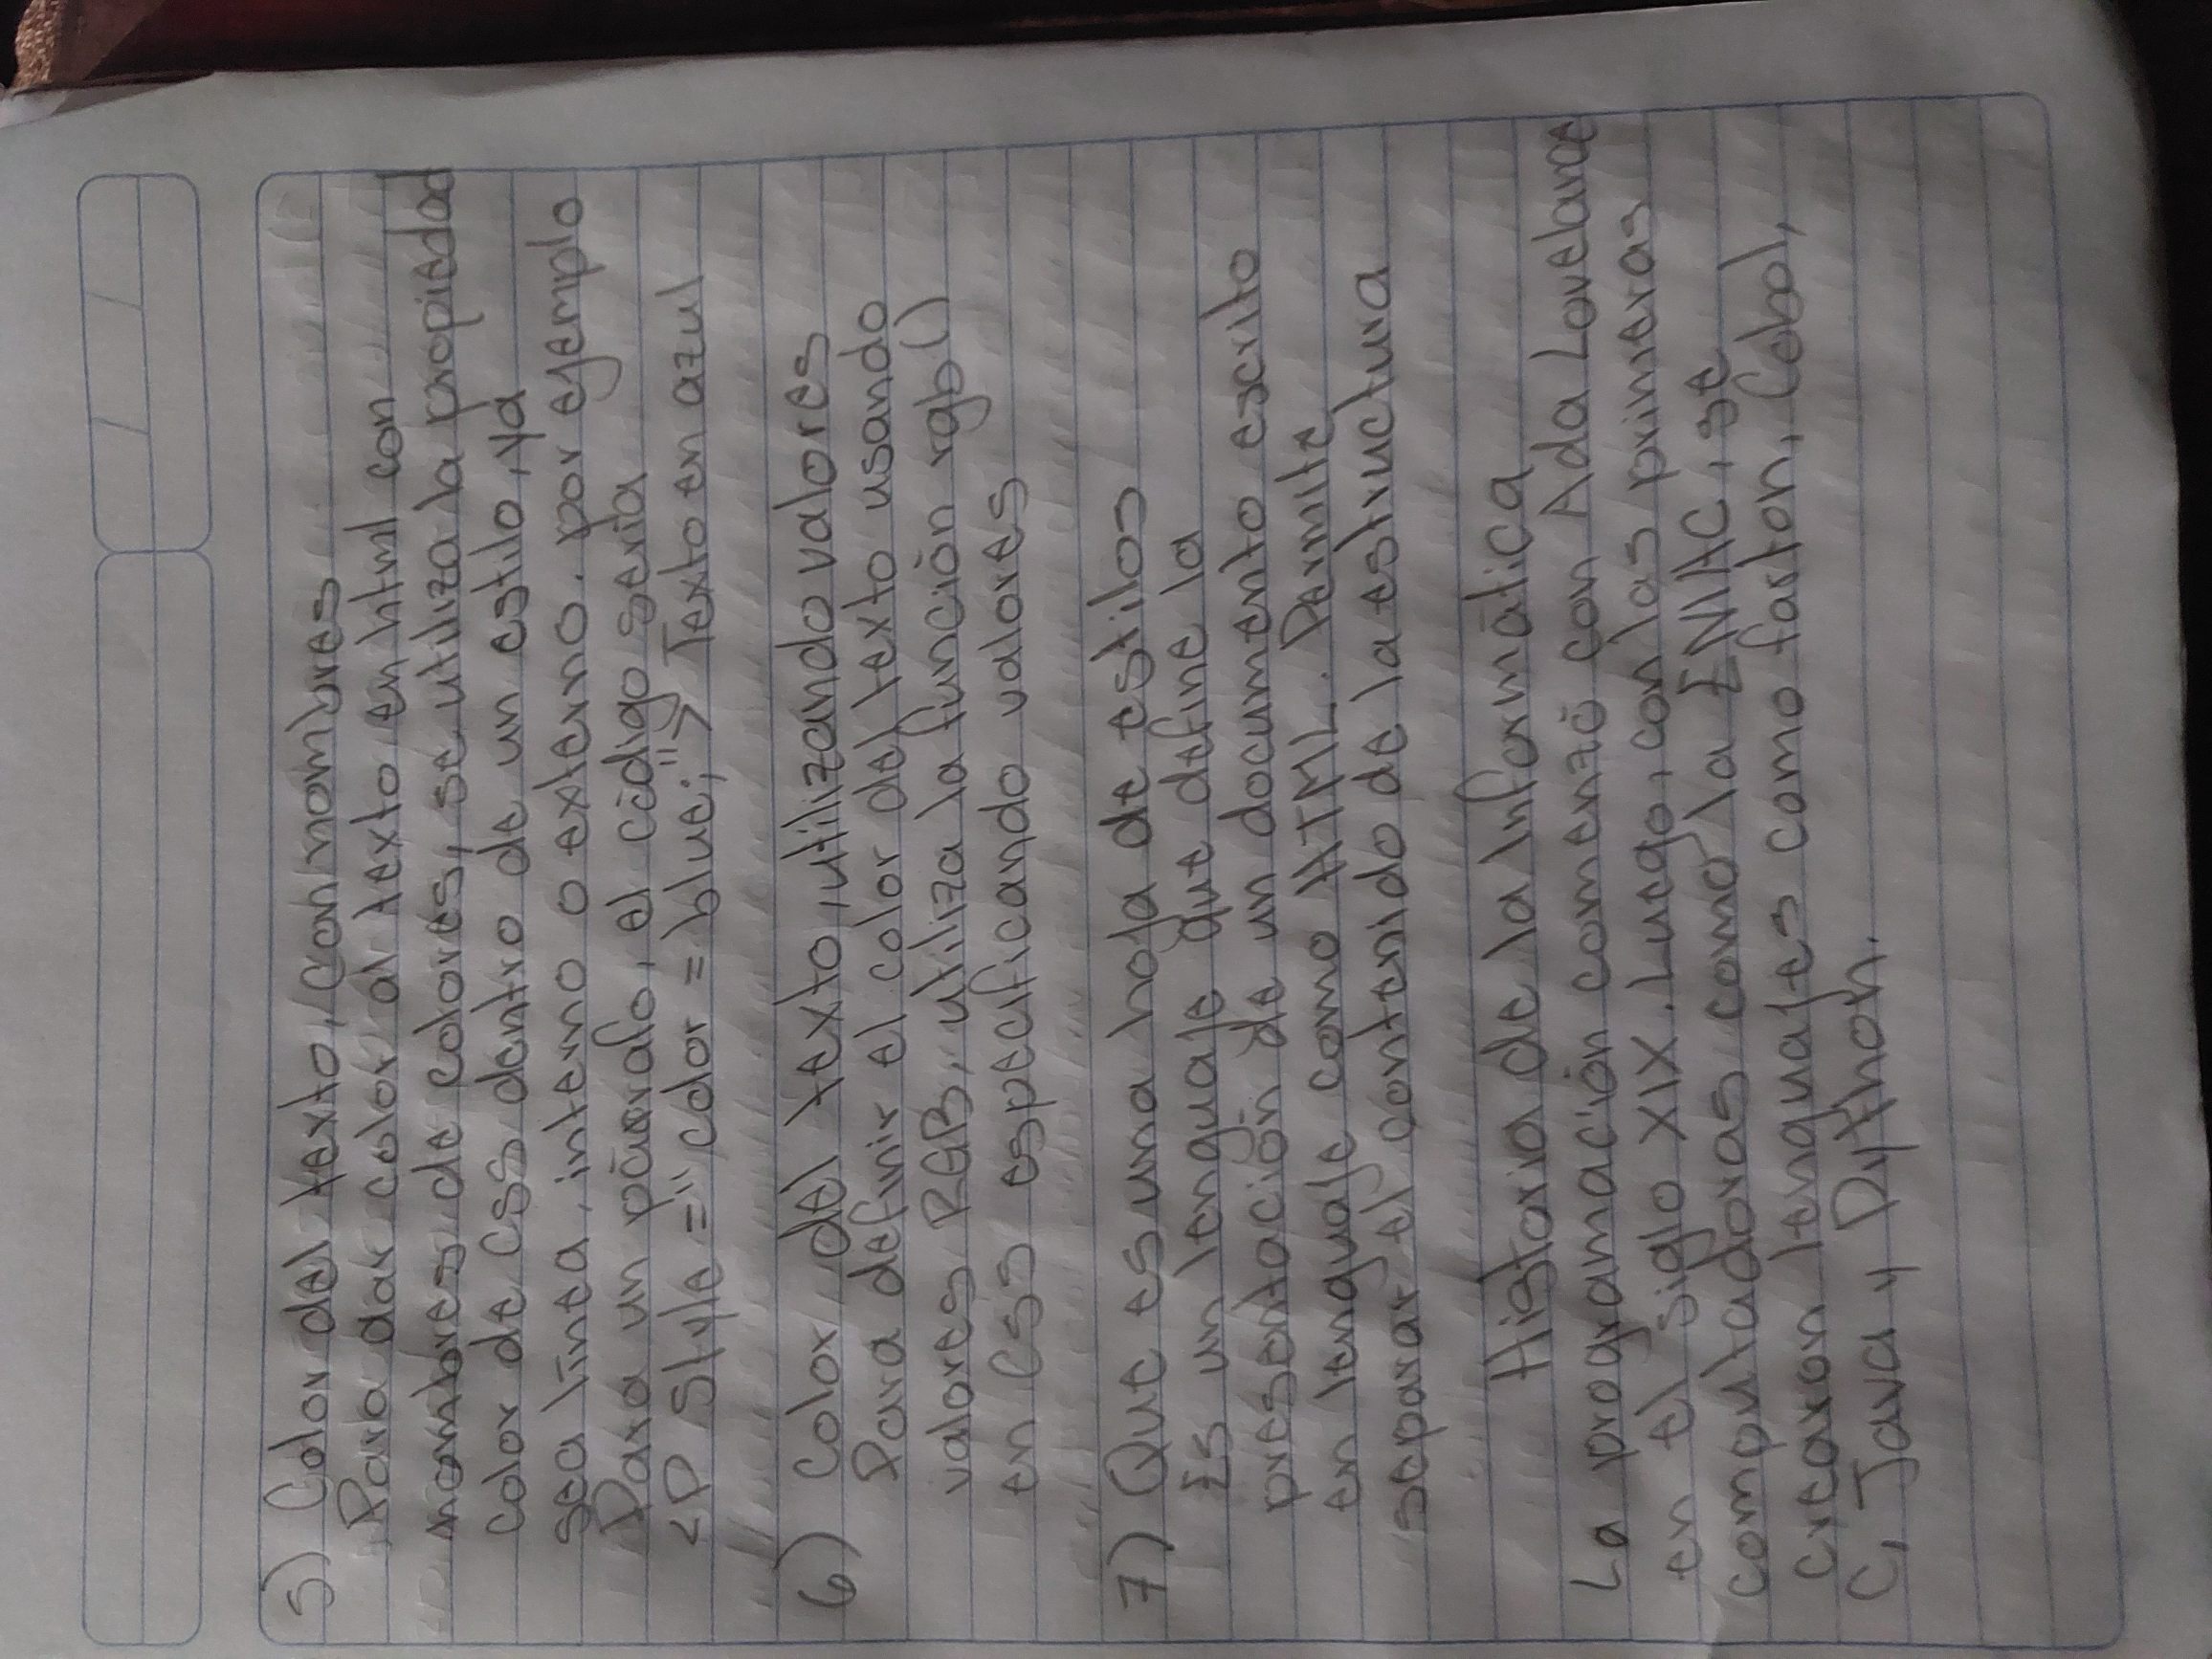 5) Color del texto, con nombres
Para dar color al texto en html con
nombres de colores, se utiliza la propiedad
color de css dentro de un estilo, ya
sea linea, interno o externo. por ejemplo
Para un párrafo, el código seria
<P Style ="color = blue;"> Texto en azul
6) Color del texto, utilizando valores
Para definir el color del texto usando
valores RGB, utiliza la función rgb()
en Css especificando valores
7) Que es una hoja de estilos
Es un lenguaje que define la
presentación de un documento escrito
en lenguaje como HTML. Permite
separar el contenido de la estructura
Historia de la Informática
La programación comenzó con Ada Lovelance
en el siglo XIX. Luego, con las primeras
computadoras como la ENIAC, se
crearon lenguajes como farton, Cobol,
C, Java y Python.